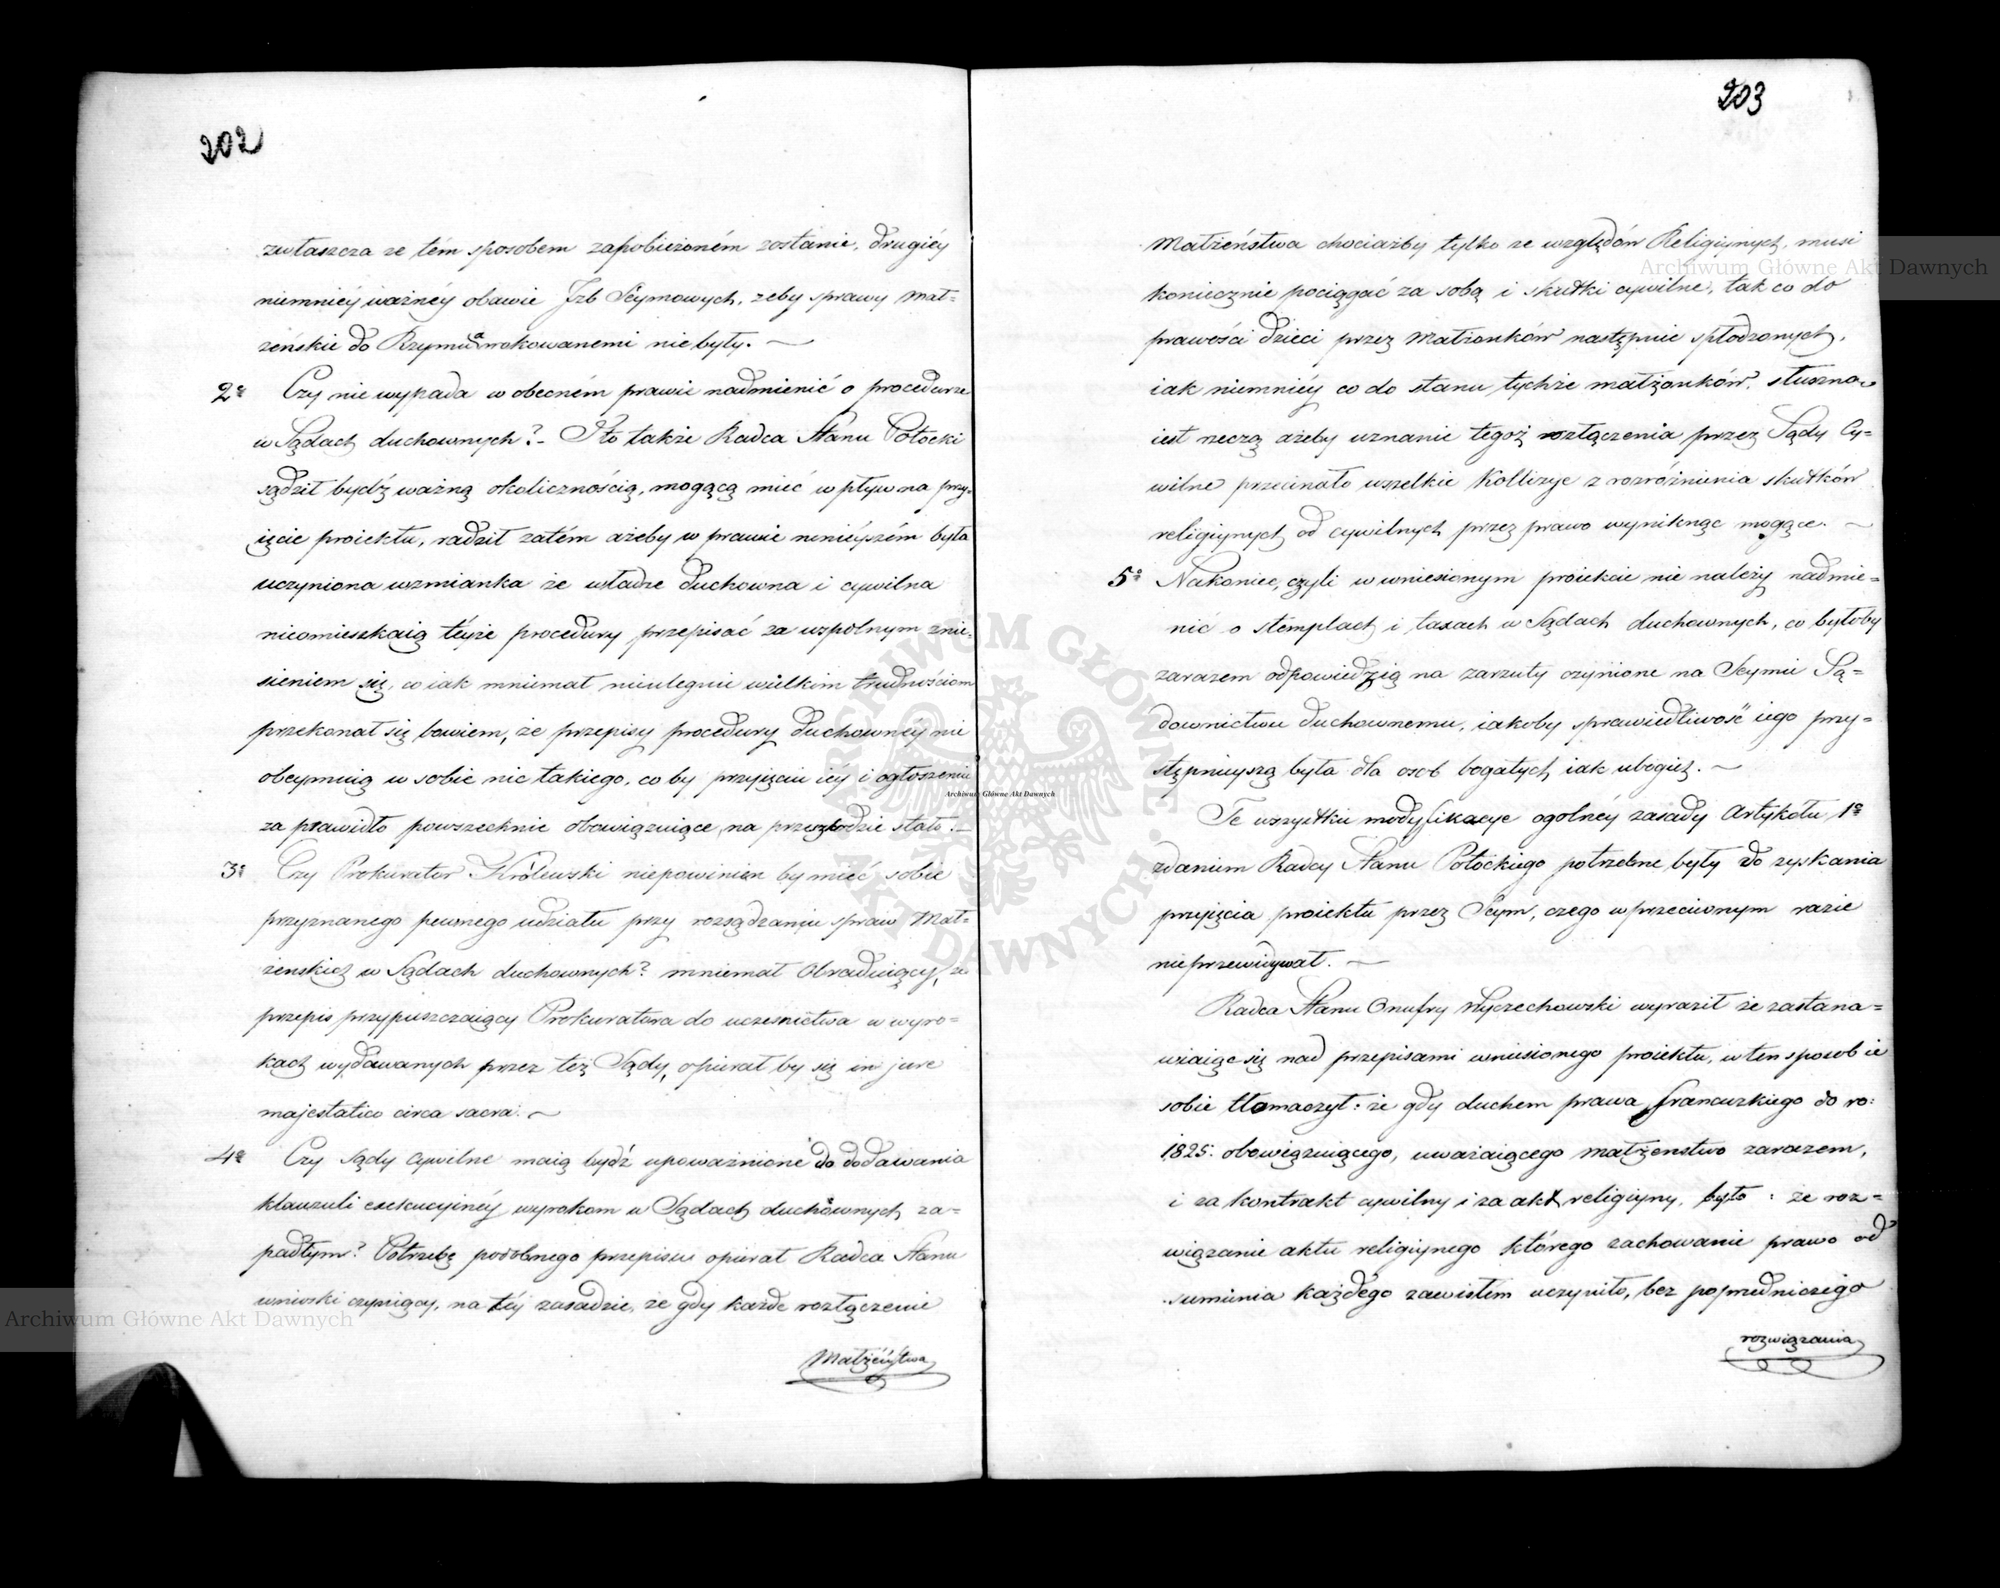 202
zwłaszcza że tém sposobem zapobieżoném zostanie, drugiéy
niemniéy ważnéy obawie Jzb Seymowych, żeby sprawy Mał=
żeńskie do Rzymu awokowanemi nie były. —
2o Czy nie wypada w obecném prawie nadmienić o procedurze
w Sądach duchownych? - I to także Radca Stanu Potocki
sądził bydź ważną okolicznością, mogącą mieć wpływ na przy=
ięcie proiektu, radził zatém ażeby w prawie ninieyszém była
uczyniona wzmianka że władze duchowna i cywilna
nieomieszkaią téyże procedury przepisać za wspólnym znie=
sieniem się, co iak mniemał nieulegnie wielkim trudnościom
przekonał się bowiem, że przepisy procedury duchownéy nie
obeymuią w sobie nic takiego, co by przyięciu iéy i ogłoszeniu
za prawidło powszechnie obowiązuiące, na przeszkodzie stało. —
3o Czy Prokurator Królewski niepowinien by mieć sobie
przyznanego pewnego udziału przy rozsądzaniu spraw Mał=
żenskich w Sądach duchownych? mniemał Obraduiący, że
przepis przypuszczaiący Prokuratora do uczesnictwa w wyro=
kach wydawanych przez też Sądy, opierał by się in jure
majestatico circa sacra. —
4o Czy Sądy Cywilne maią bydź upoważnione do dodawania
klauzuli exekucyinéy wyrokom w Sądach duchownych za=
padłym? Potrzebę podobnego przepisu opierał Radca Stanu
wnioski czyniący, na téy zasadzie, że gdy każde rozłączenie
Małżeństwa
203
Małżeństwa chociażby tylko ze względów Religiynych, musi
koniecznie pociągać za sobą i skutki cywilne, tak co do
prawości dzieci przez Małżonków następnie spłodzonych,
iak niemniéy co do stanu tychże małżonków, słuszną
iest rzeczą ażeby uznanie tegoż rozłączenia przez Sądy Cy=
wilne przecinało wszelkie Kollizye z rozróżnienia skutków
religiynych od cywilnych przez prawo wyniknąc mogące. —
5o Nakoniec, czyli w wniesionym proiekcie nie należy nadmie=
nić o stemplach i taxach w Sądach duchownych, co byłoby
zarazem odpowiedzią na zarzuty czynione na Seymie Są=
downictwu duchownemu, iakoby sprawiedliwość iego przy=
stępnieyszą była dla osob bogatych iak ubogich. —
Te wszystkie modyfikacye ogolnéy zasady Artykułu 1o
zdaniem Radcy Stanu Potockiego potrzebne były do zyskania
przyięcia proiektu przez Seym, czego w przeciwnym razie
nieprzewidywał. —
Radca Stanu Onufry Wyczechowski wyraził że zastana=
wiaiąc się nad przepisami wniesionego proiektu, w ten sposób ie
sobie tłomaczył: że gdy duchem prawa francuzkiego do ro:
1825: obowiązuiącego, uważaiącego małżenstwo zarazem,
i za kontrakt cywilny i za akt religiyny, było: że roz=
wiązanie aktu religiynego którego zachowanie prawo od
sumienia każdego zawisłém uczyniło, bez poprzedniczego
rozwiązania
Archiwum Główne Akt Dawnych
Archiwum Główne Akt Dawnych
Archiwum Główne Akt Dawnych
ARCHIWUM GŁÓWNE AKT DAWNYCH